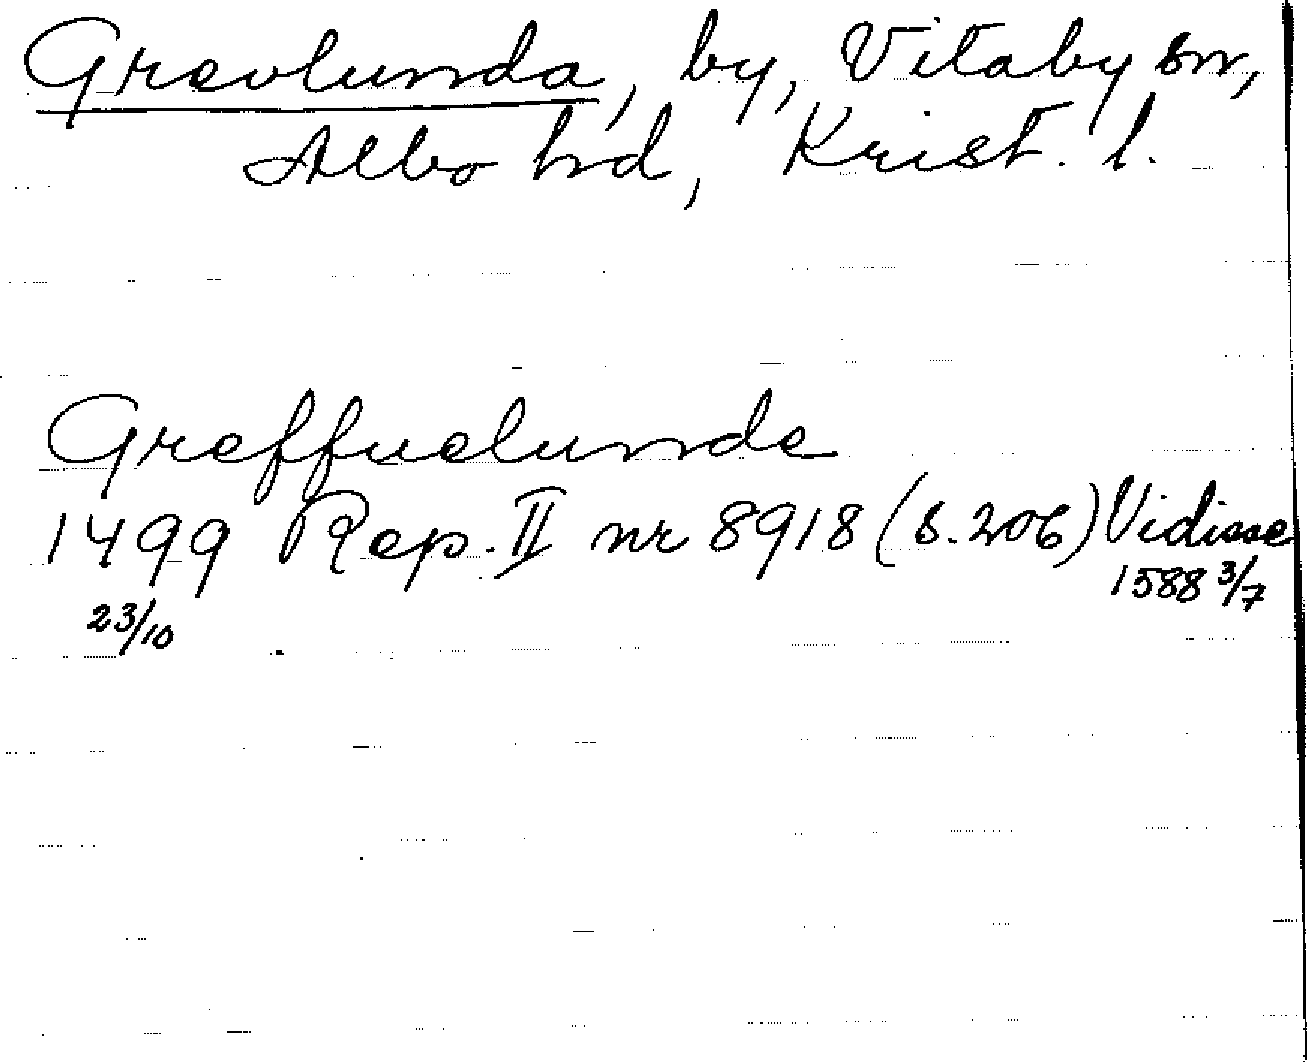 Grevlunda, by, Vitaby sn,
Albo hd, Krist. l.
Greffuelunde
1499 Rep. II nr 8918 (s. 206) Vidisse
23/10 1588 3/7